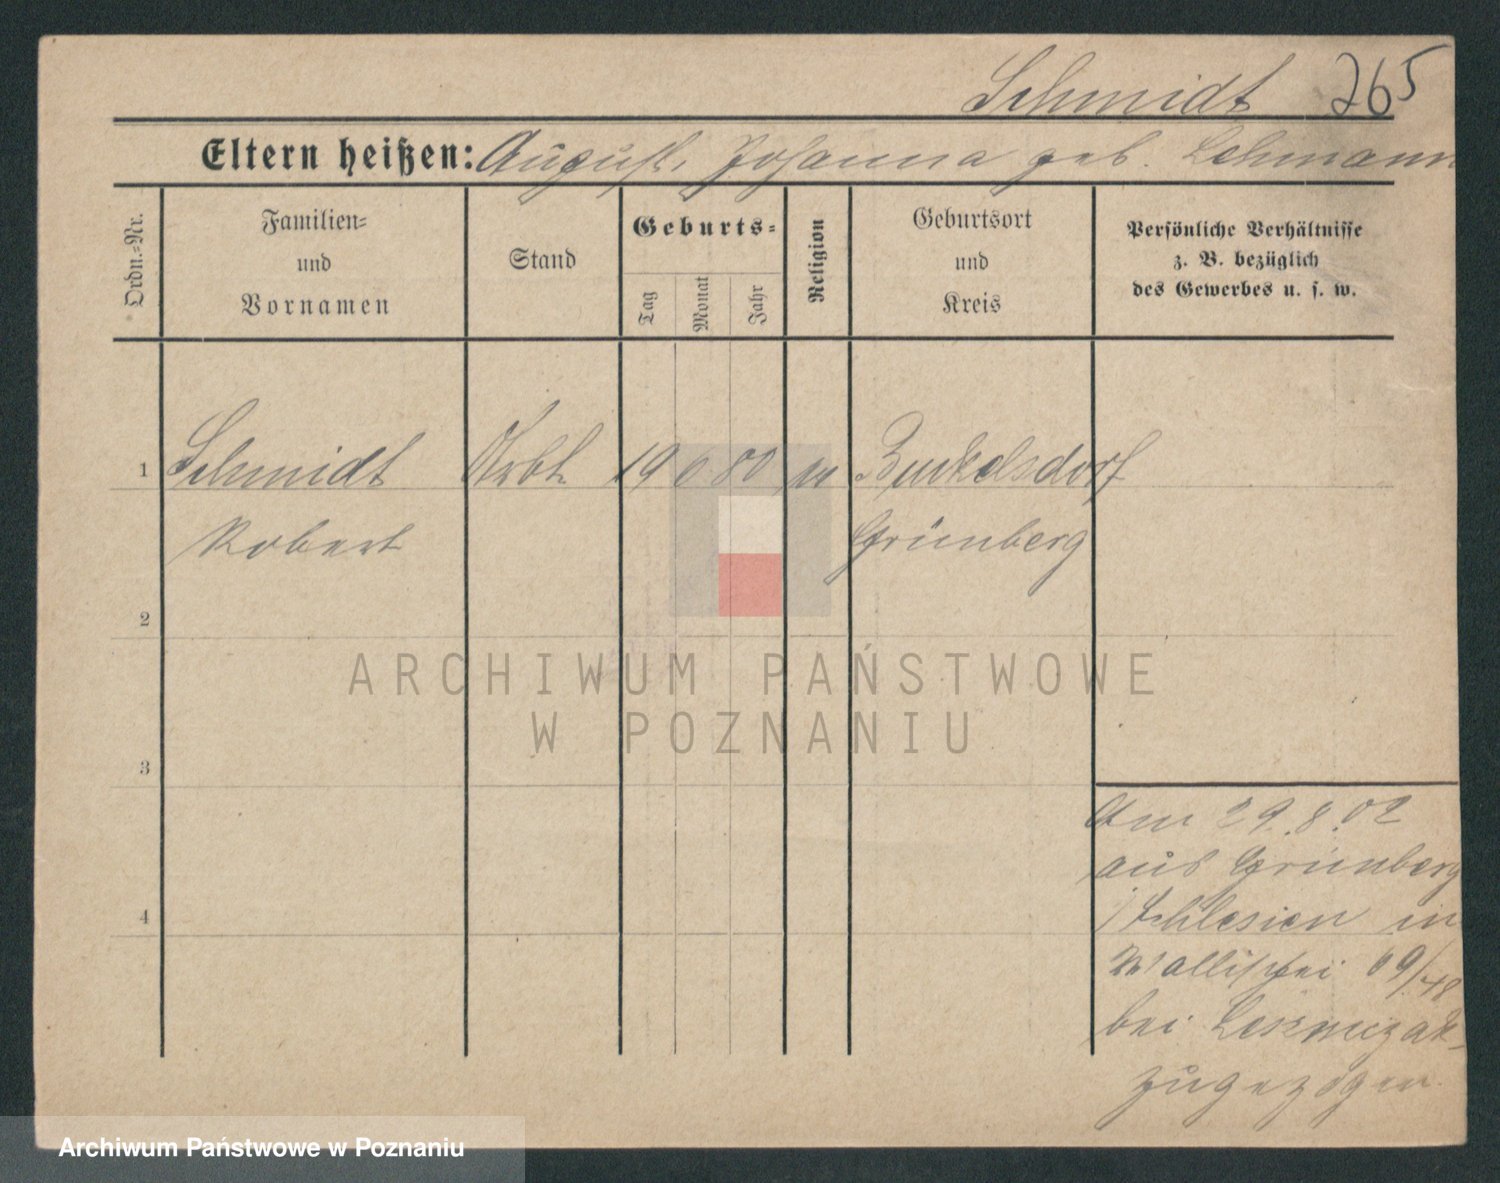 Schmidt 265
Eltern heißen: August, Johanna geb. Lehmann
Ordn.-Nr.
Familien-
und
Vornamen
Stand
Geburts-
Tag
Monat
Jahr
Religion
Geburtsort
und
Kreis
Persönliche Verhältnisse
z. B. bezüglich
des Gewerbes u. s. w.
1 Schmidt Arbt 19 6 80 Buckelsdorf
Robert Grünberg
2
3
4
Am 29.8.02
aus Grünberg
i/Schlesien in
Wallischei 69/78
bei
zugezogen.
ARCHIWUM PAŃSTWOWE
W POZNANIU
Archiwum Państwowe w Poznaniu